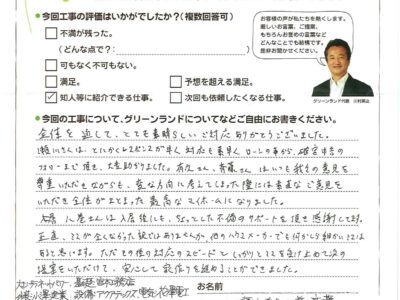 ●今回工事の評価はいかがでしたか?(複数回答可)
不満が残った。
(どんな点で?:
可もなく不可もない。
満足。
予想を超える満足。
知人等に紹介できる仕事。
次回も依頼したくなる仕事。
お客様の声が私たちを熱くします。
厳しいお言葉、ご提案、
もちろんお褒めの言葉など
どんなことでも結構です。
是非お聞かせください。
グリーンランド代表
●今回の工事について、グリーンランドについてなどご自由にお書きください。
全体を通して、とても素晴らしいご対応ありがとうございました。
瀬川さんは、とにかくレスポンスが早く対応も素早くローンの事から確定申告の
フォローまで頂き、大変助かりました。
さんは いつも我々の意見を
尊重いただきながらも、変な方向に考えてしまった際には素直なご意見を
いただき全体がまとまった最高なマイホームになりました。
さんは入居後にも、ちょっとした不備のサポートを頂き感謝してます。
正直、ミスが全くなかった訳ではありませんが、他のハウスメーカーでも何かしら細かいミスは
有ると思います。ただその後の対応のスピードと しっかりとミスを受け止めて次の
提案をいただけて、安心して家作りを進めることができました。
お名前